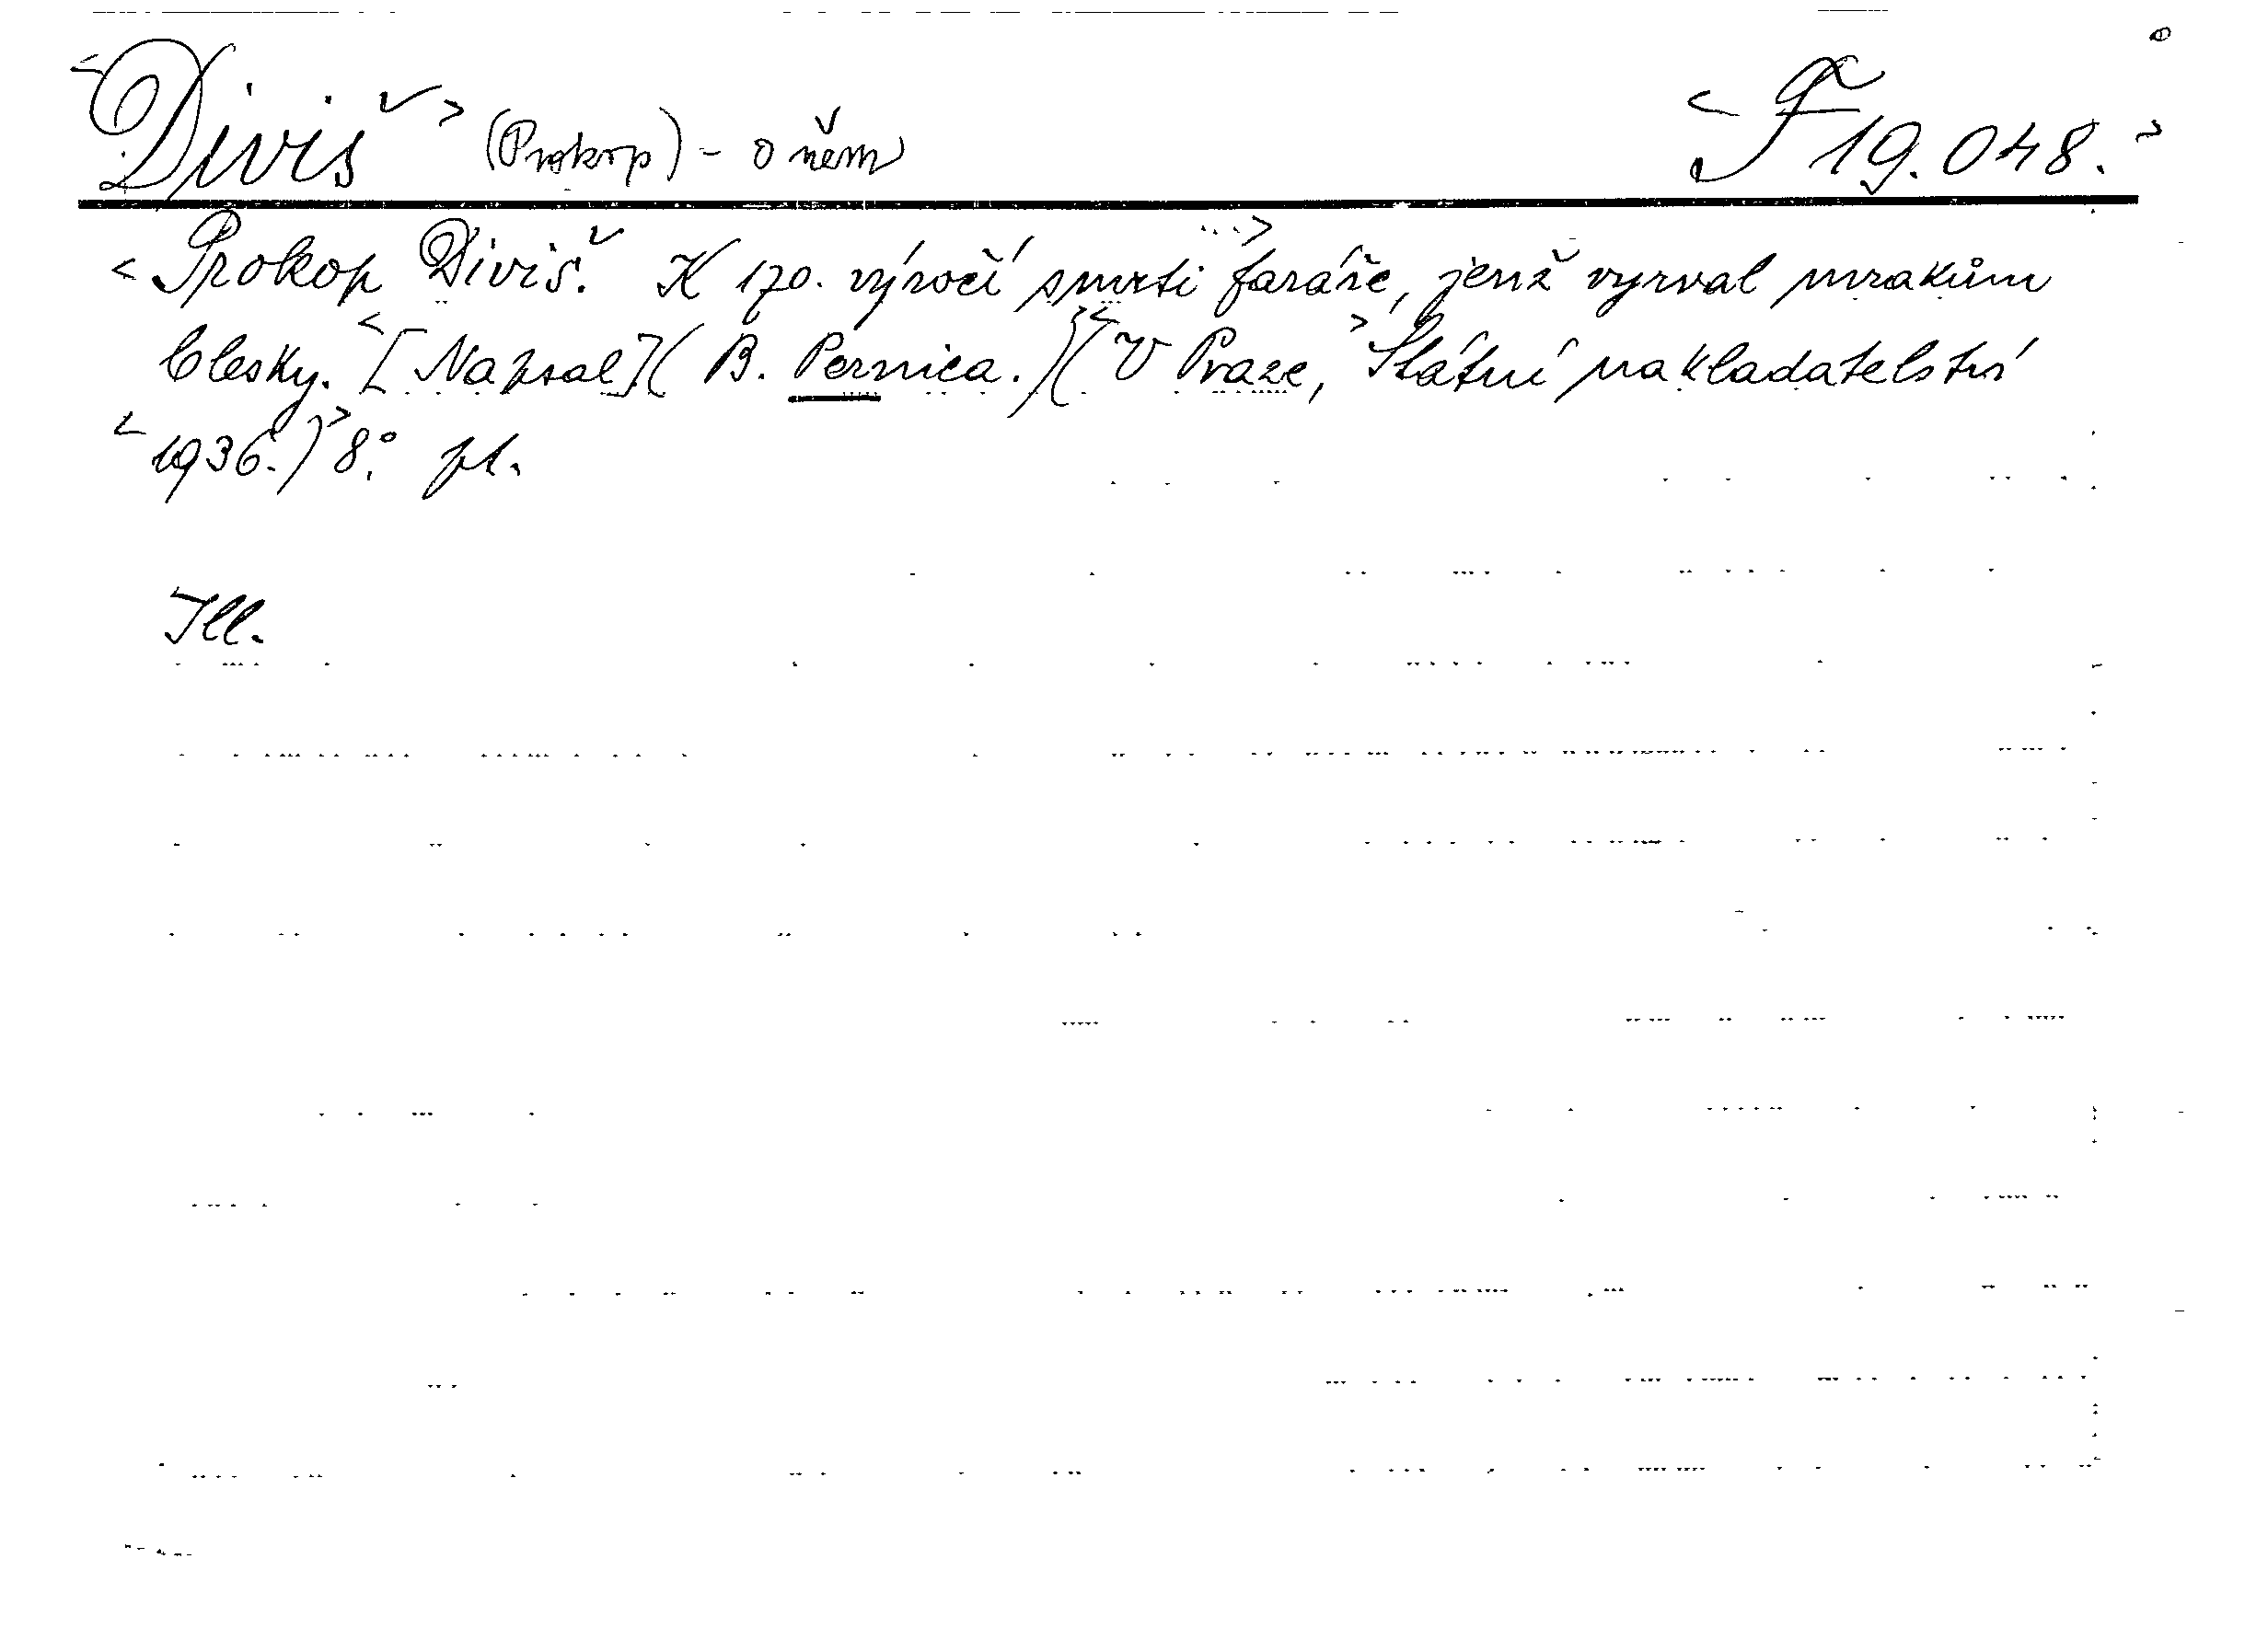 <Diviš> (Prokop) - o něm <F 19.048.>
<Prokop Diviš. K 170. výročí smrti ...> faráře, jenž vyrval mrakům
blesky. <[Napsal] (B. Pernica.)> <(V Praze,> Státní nakladatelství
<1936.)> 8°. pl.
Ill.